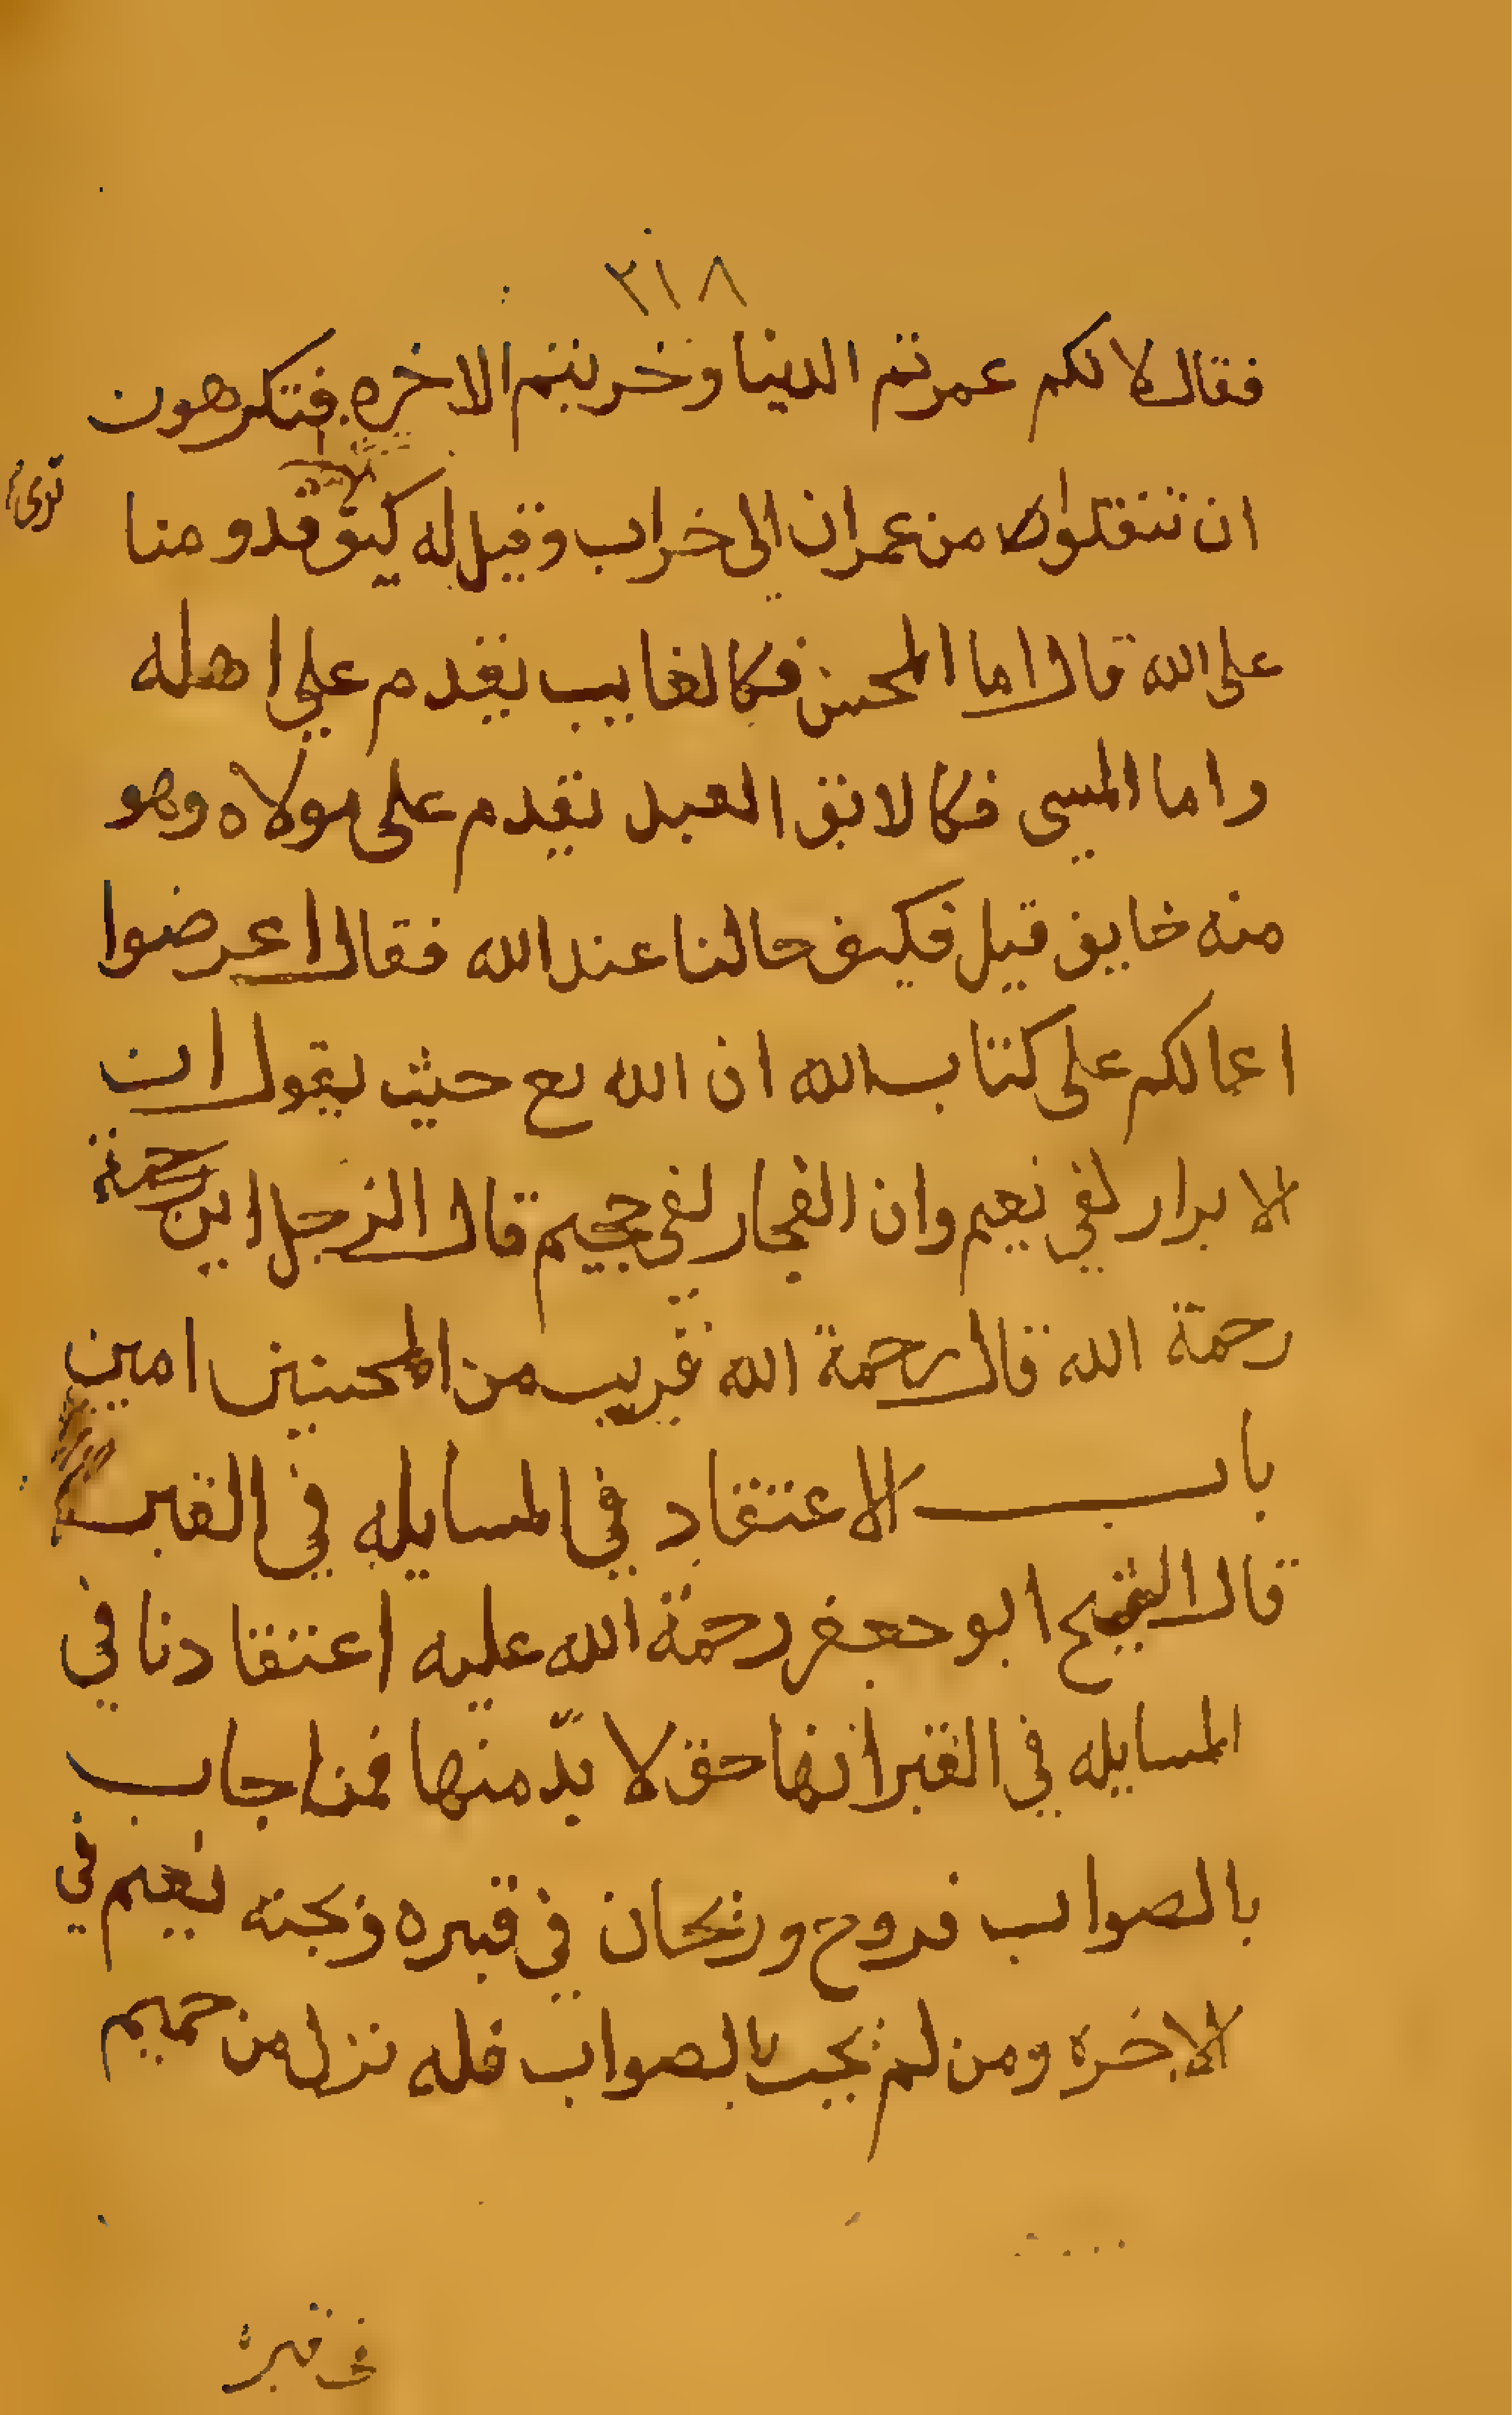 ٣١٨
فقال لا لكم عمرتم الدينا وخربتم الاخره فتكرهون
ان تنقلوا من عمران الى خراب وقيل له كيف قدومنا
ترى
على الله قال اما المحسن فكالغايب يقدم علي اهله
واما المسي فكالابق العبد يقدم على مولاه وهو
منه خايف قيل فكيف حالنا عند الله فقال اعرضوا
اعمالكم على كتاب الله ان الله تع حيث يقول ان
الابرار لفي نعيم وان الفجار لفي جحيم قال الرجل اين رحمة
رحمة الله قال رحمة الله قريب من المحسنين امين
باب الاعتقاد في المسايله في القبر
قال الشيخ ابو جعفر رحمة الله عليه اعتقادنا في
المسايله في القبر انها حق لا بدّ منها فمن اجاب
بالصواب فروح وريحان في قبره وبجنة نعيم في
الاخره ومن لم يجب بالصواب فله نزل من حميم
في قبره